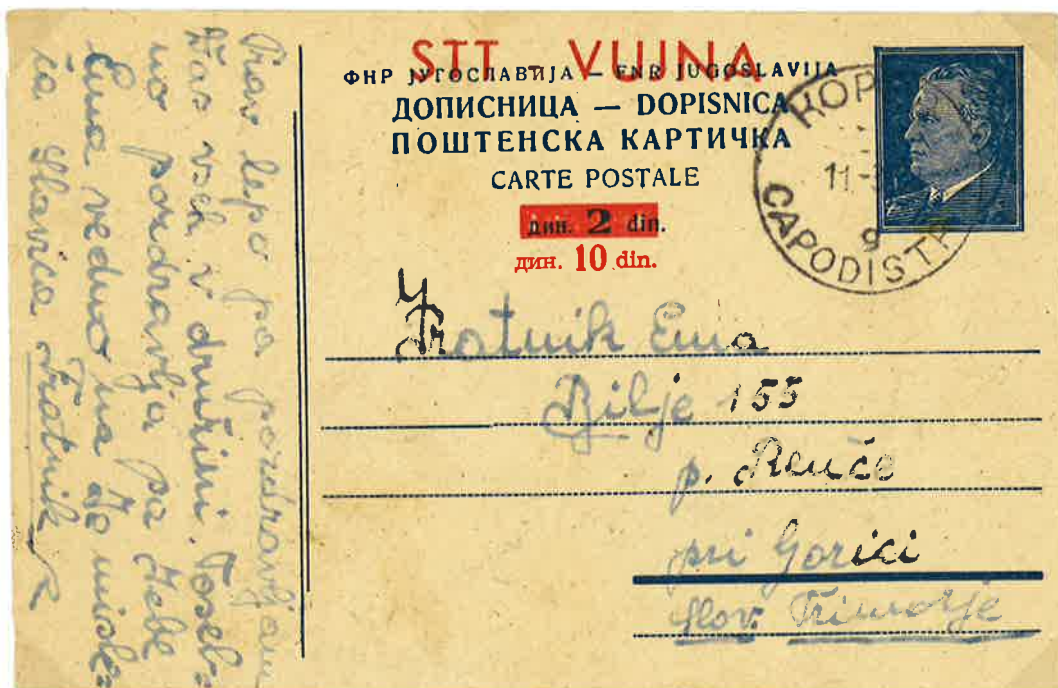 STT VUJNA
ФНР ЈУГОСЛАВИЈА — FNR JUGOSLAVIJA
ДОПИСНИЦА — DOPISNICA
ПОШТЕНСКА КАРТИЧКА
CARTE POSTALE
дин. 2 din.
дин. 10 din.
KOP
11-
9
CAPODISTR
Fratnik Ema
Bilje 155
p. Renče
pri Gorici
Slov. Primorje
Prav lepo pa pozdravljam
Vas vseh v družini. Poseb-
no pozdravlja pa Tebe
Ema vedno na Te misle-
ča Slavica Fratnik